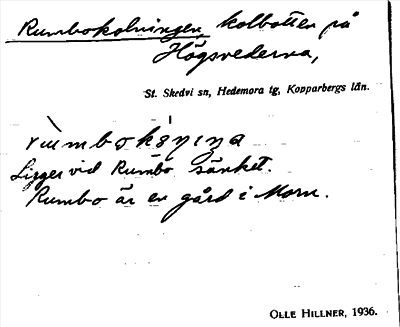 Rumbokolningen, kolbotten på
Högsvederna,
St. Skedvi sn, Hedemora tg, Kopparbergs län.
Ligger vid Rumbo sänket.
Rumbo är en gård i Morn.
OLLE HILLNER, 1936.